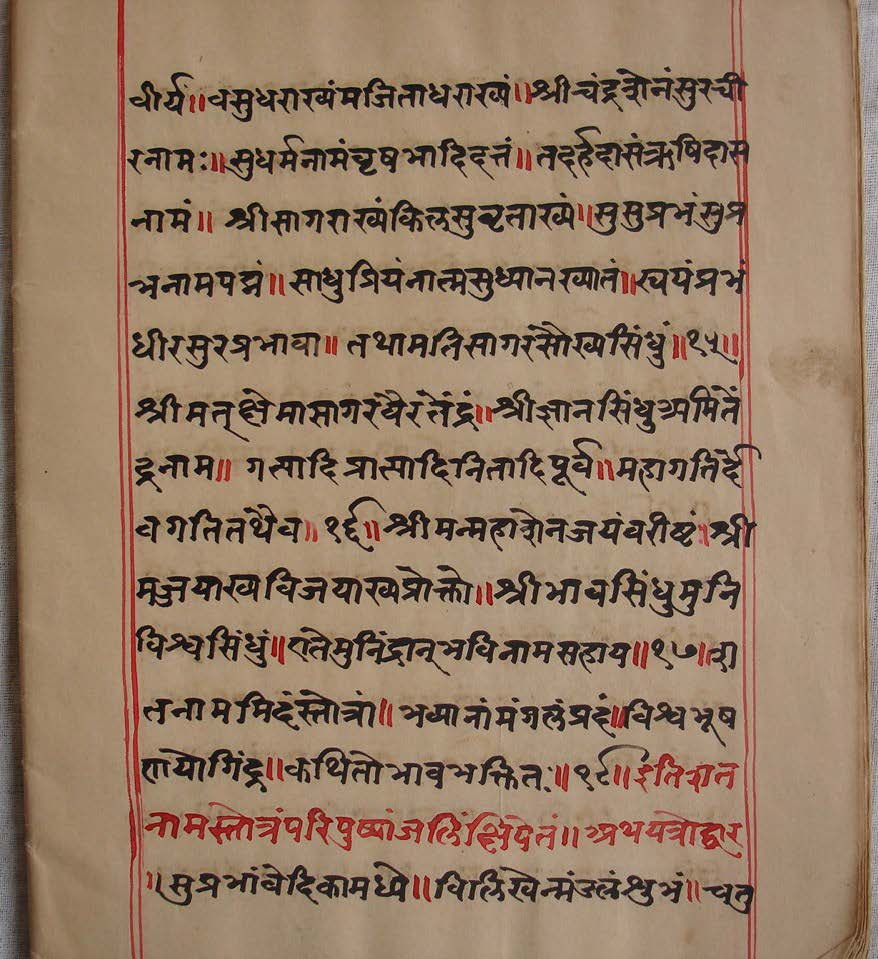 वीर्य॥वसुधराख्यंमजिताधराख्यं॥श्रीचंद्रशेनंसुरची
रनामः॥सुधर्मनामंवृषभादिदत्तं॥तदर्हदासंऋषिदास
नामं॥ श्रीसागराख्यंकिलसुवृताख्यं॥सुसुप्रभंसुप्र
भनामपद्मं॥साधुप्रियंनात्मसुध्यानख्यातं॥स्वयंप्रभं
धीरसुरप्रभावा॥तथामतिसागरंसौख्यसिंधुं॥१५॥
श्रीमत्क्षेमासागरंधैरतेंद्रं॥श्रीज्ञानसिंधुअमितें
द्रनाम॥ गत्यादिजात्यादिनितादिपूर्व॥महागतिर्दे
वगतितथैव॥१६॥श्रीमन्महाशेनजयंवरीष्टं॥श्री
मज्जयाख्यविजयाख्यप्रोक्तो॥श्रीभावसिंधुमुनि
विश्वसिंधुं॥एतेमुनिंद्रान्भविनामसहाय॥१७॥श
तनाममिदंस्तोत्रां॥भव्यानांमंगलंप्रदं॥विश्वभूष
णयोगिंद्र॥कथितोभावभक्तितः॥१८॥इतिशत
नामस्तोत्रंपरिपुष्पांजलिंक्षिपेतं॥अथयत्रोद्धार
॥सुप्रभांवेदिकामध्ये॥विलिखेन्मंडलंशुभं॥चतु